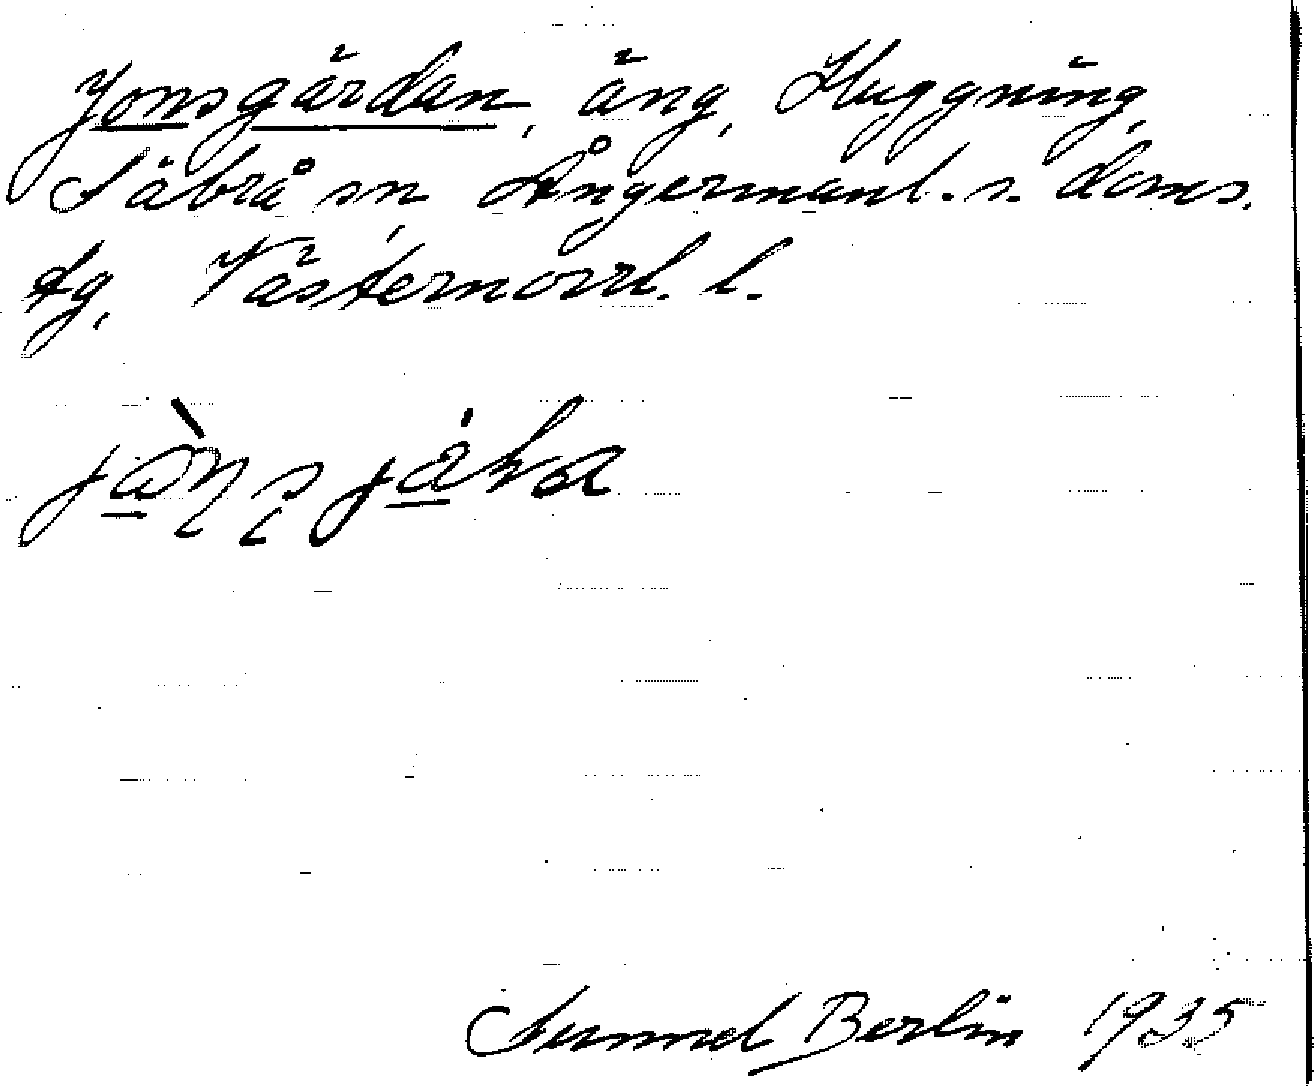 Jonsgärdan, äng, Huggning,
Säbrå sn, Ångermanl. s. doms.
tg, Västernorrl. l.
Sunnel Berlin 1935